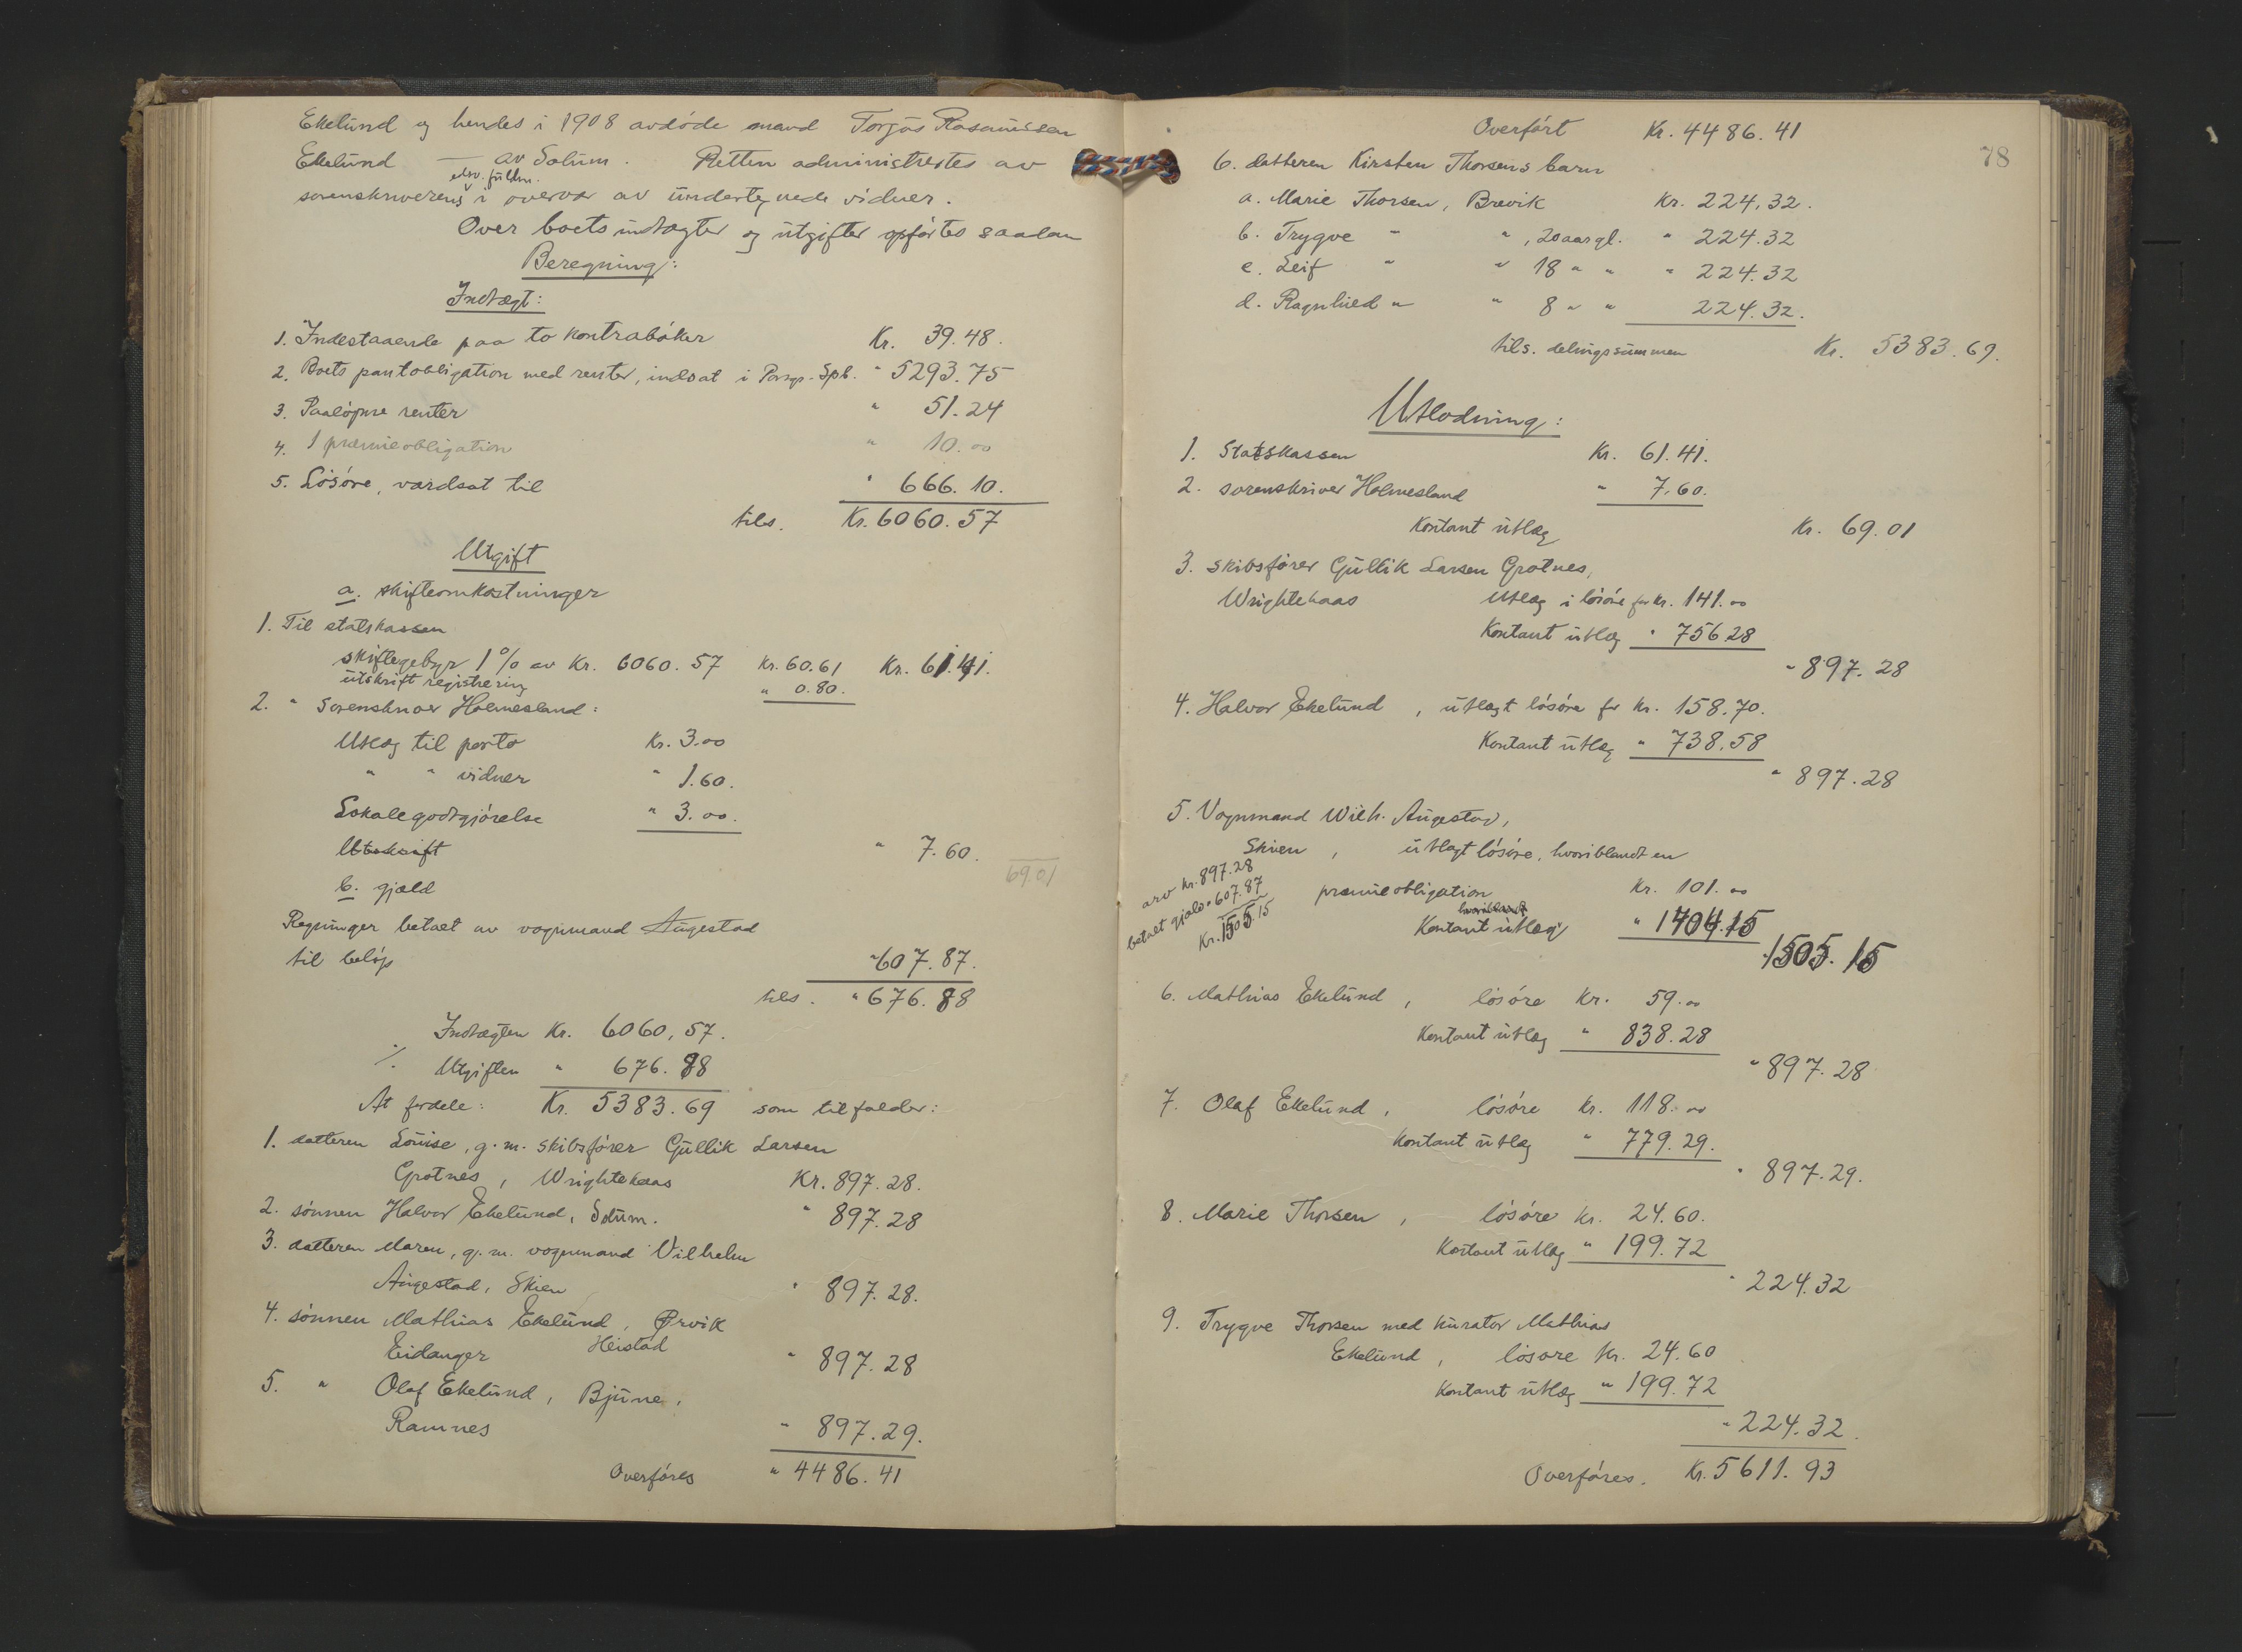 Ekelund og hendes i 1908 avdöde mand Torjus Rasmussen
Ekelund — av Solum. Retten administrertes av
edsv. fuldm.
sorenskriverens i overvær av undertegnede vidner.
Over boets indtægter og utgifter opførtes saadan
Beregning:
Indtægt:
1. Indestaaende paa to kontrabøker Kr. 39.48.
2. Boets pantobligation med renter, indsat i Porsgr. Spb. " 5293.75
3. Paaløpne renter " 51.24
4. 1 præmieobligation " 10.00
5. Løsøre, værdsat til " 666.10.
tils. Kr. 6060.57
Utgift
a. skifteomkostninger
1. Til statskassen
skiftegebyr 1% av Kr. 6060.57 Kr. 60.61 Kr. 61.41.
utskrift registrering " 0.80.
2. " Sorenskriver Holmesland:
Utlæg til porto Kr. 3.00
" " vidner " 1.60.
Lokalegodtgjørelse " 3.00.
Utskrift " 7.60.
69.01
b. gjæld
Regninger betalt av vognmand Augestad
til beløp " 607.87.
tils. " 676.88
Indtægten Kr. 6060,57.
÷ Utgiften " 676.88
At fordele: Kr. 5383.69 som tilfalder:
1. datteren Louise, g.m. skibsfører Gullik Larsen
Grotnes, Wrightehaas Kr. 897.28.
2. sønnen Halvor Ekelund, Solum. " 897.28
3. datteren Maren, g.m. vognmand Vilhelm
Augestad, Skien " 897.28.
4. sønnen Mathias Ekelund, Ørvik
Heistad
Eidanger " 897.28
5. " Olaf Ekelund, Bjune,
Ramnes " 897.29.
Overføres " 4486.41
78
Overført Kr. 4486.41
6. datteren Kirsten Thorsens barn
a. Marie Thorsen, Brevik Kr. 224.32.
b. Trygve " ", 20 aar gl. " 224.32
c. Leif " " 18 " " " 224.32
d. Ragnhild " " 8 " " 224.32.
tils. delingssummen Kr. 5383.69.
Utlodning:
1. Statskassen Kr. 61.41.
2. sorenskriver Holmesland " 7.60.
Kontant utlæg Kr. 69.01
3. skibsfører Gullik Larsen Grotnes,
Wrightehaas Utlæg i løsøre for kr. 141.00
Kontant utlæg " 756 28
" 897.28
4. Halvor Ekelund, utlagt løsøre for Kr. 158.70.
Kontant utlæg " 738.58
" 897.28
5. Vognmand Wilh. Augestad,
Skien, utlagt løsøre, hvoriblandt en
præmieobligation Kr. 101.00
hvoriblandt
Kontant utlæg " 1404.15
" 1505.15
arv Kr. 897.28
betalt gjæld " 607.87
Kr. 1505.15
6. Mathias Ekelund, løsøre Kr. 59.00
Kontant utlæg " 838.28
" 897.28
7. Olaf Ekelund, løsøre Kr. 118.00
Kontant utlæg " 779.29.
" 897.29.
8. Marie Thorsen, løsøre Kr. 24.60.
Kontant utlæg " 199.72
" 224.32
9. Trygve Thorsen med kurator Mathias
Ekelund, løsøre Kr. 24.60
Kontant utlæg " 199.72
" 224.32.
Overføres. Kr. 5611.93